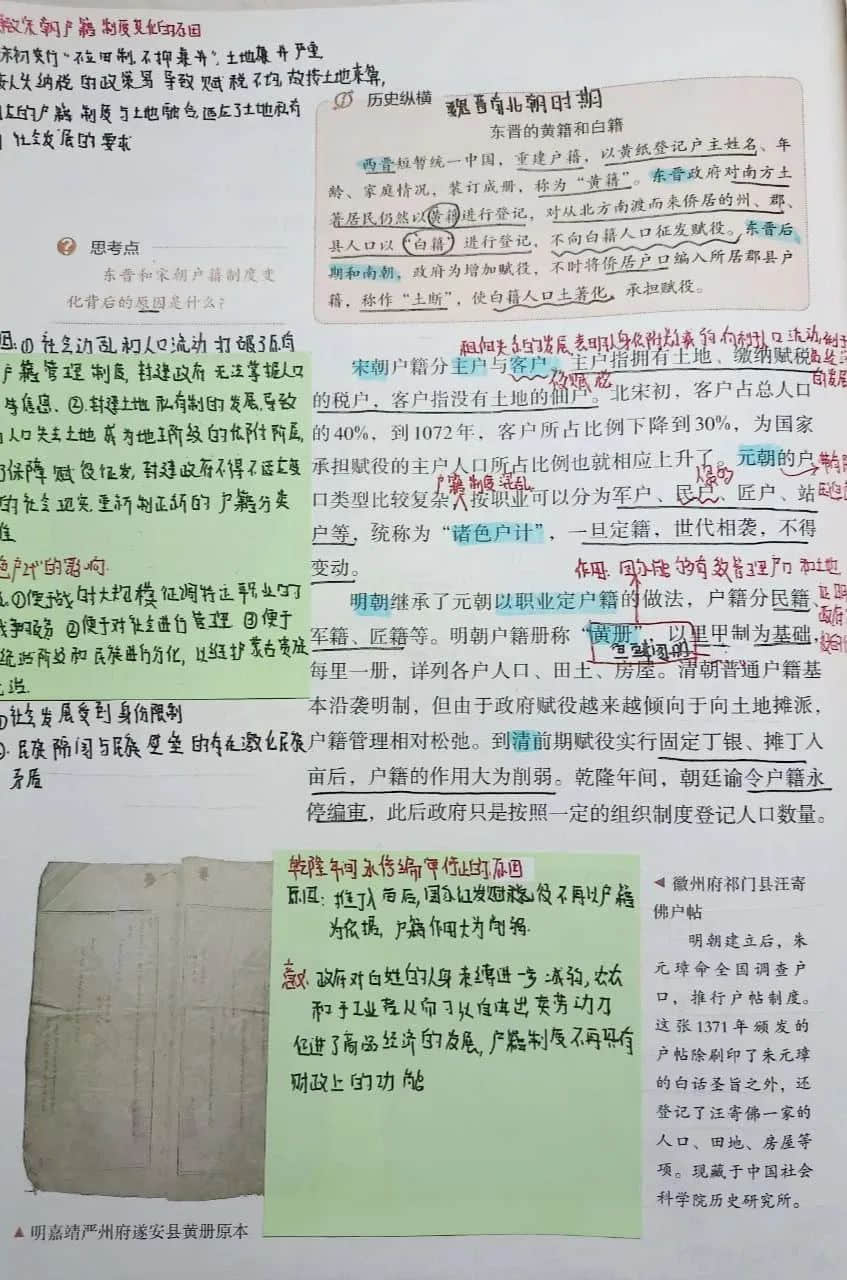 宋朝户籍制度变化的原因
宋初实行"不立田制,不抑兼并",土地兼并严重
按人头纳税的政策易导致赋税不均,故按土地来算,
的户籍制度与土地融合,适应了土地私有
社会发展的要求
历史纵横 魏晋南北朝时期
东晋的黄籍和白籍
西晋短暂统一中国,重建户籍,以黄纸登记户主姓名、年
龄、家庭情况,装订成册,称为“黄籍”。东晋政府对南方土
著居民仍然以黄籍进行登记,对从北方南渡而来侨居的州、郡、
县人口以“白籍”进行登记,不向白籍人口征发赋役。东晋后
期和南朝,政府为增加赋役,不时将侨居户口编入所居郡县户
籍,称作“土断”,使白籍人口土著化,承担赋役。
思考点
东晋和宋朝户籍制度变
化背后的原因是什么?
因:①社会动乱和人口流动打破了原有
户籍管理制度,封建政府无法掌握人口
信息.②封建土地私有制的发展,导致
人口失去土地成为地主阶级的依附阶层,
保障赋役征发,封建政府不得不适应
的社会现实,重新制定新的户籍分类
色户计"的影响
①便于战时大规模征调特定职业的
服务 ②便于对社会进行管理 ③便于
统治阶级和民族进行分化,以维护蒙古贵族
统治.
①社会发展受到身份限制
②.民族隔阂与民族壁垒的存在激化民族
矛盾
租佃关系的发展,表明人身依附关系减弱,有利于人口流动
宋朝户籍分主户与客户。主户指拥有土地、缴纳赋税
的税户,客户指没有土地的佃户。北宋初,客户占总人口
的40%,到1072年,客户所占比例下降到30%,为国家
承担赋役的主户人口所占比例也就相应上升了。元朝的户
户籍制度混乱
口类型比较复杂,按职业可以分为军户、民户、匠户、站
户等,统称为“诸色户计”,一旦定籍,世代相袭,不得
变动。
作用:国家能够有效管理户口和土地
明朝继承了元朝以职业定户籍的做法,户籍分民籍、
军籍、匠籍等。明朝户籍册称“黄册”,以里甲制为基础,
鱼鳞图册
每里一册,详列各户人口、田土、房屋。清朝普通户籍基
本沿袭明制,但由于政府赋役越来越倾向于向土地摊派,
户籍管理相对松弛。到清前期赋役实行固定丁银、摊丁入
亩后,户籍的作用大为削弱。乾隆年间,朝廷谕令户籍永
停编审,此后政府只是按照一定的组织制度登记人口数量。
乾隆年间永停编审停止的原因
原因:摊丁入亩后,国家征发赋税役不再以户籍
为依据,户籍作用大为削弱.
意义:政府对百姓的人身束缚进一步减弱,农民
和手工业者从而可以自由出卖劳动力
促进了商品经济的发展,户籍制度不再具有
财政上的功能
徽州府祁门县汪寄
佛户帖
明朝建立后,朱
元璋命全国调查户
口,推行户帖制度。
这张1371年颁发的
户帖除刷印了朱元璋
的白话圣旨之外,还
登记了汪寄佛一家的
人口、田地、房屋等
项。现藏于中国社会
科学院历史研究所。
明嘉靖严州府遂安县黄册原本